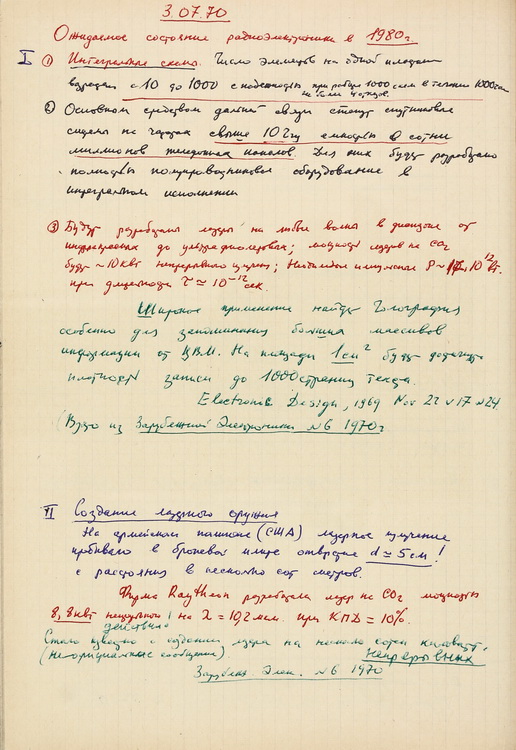 3.07.70
Ожидаемое состояние радиоэлектроники в 1980г.
I ① Интегральные схемы. Число элементов на одной
с 10 до 1000 с надежностью при работе 1000 схем в течении 1000
не было отказов.
② Основным средством дальней связи станут спутниковые
системы на частотах свыше 10 Ггц емкостью в сотни
миллионов телефонных каналов. Для них будут разработано
полупроводниковое оборудование в
интегральном исполнении
③ Будут разработаны лазеры на любые волны в диапазоне от
инфракрасных до ультрафиолетовых; мощность лазеров на CO2
будет ~10квт непрерывного излучен; P ~ 10¹² вт.
при длительности τ ≃ 10⁻¹² сек.
Широкое применение найдут Голография
особенно для запоминания больших массивов
информации от ЦВМ. На площади 1 см² будут
плотность записи до 1000 страниц текста.
Electronic Design, 1969 Nov 22 v 17 N24.
(Взято из Зарубежной Электроники N6 1970г
II Создание лазерного оружия
На армейском полигоне (США) лазерное излучение
пробивало в броневой плите отверстие d ≃ 5 см!
с расстояния в несколько сот метров.
Фирма Raytheon разработала лазер на CO2 мощностью
8,8 квт непрерывного действия на λ = 10,2 мкм. при КПД = 10%.
Стало известно о создании лазера на сотен киловатт,
(неофициальные сообщения) непрерывных
Зарубеж. Элек. N6 1970